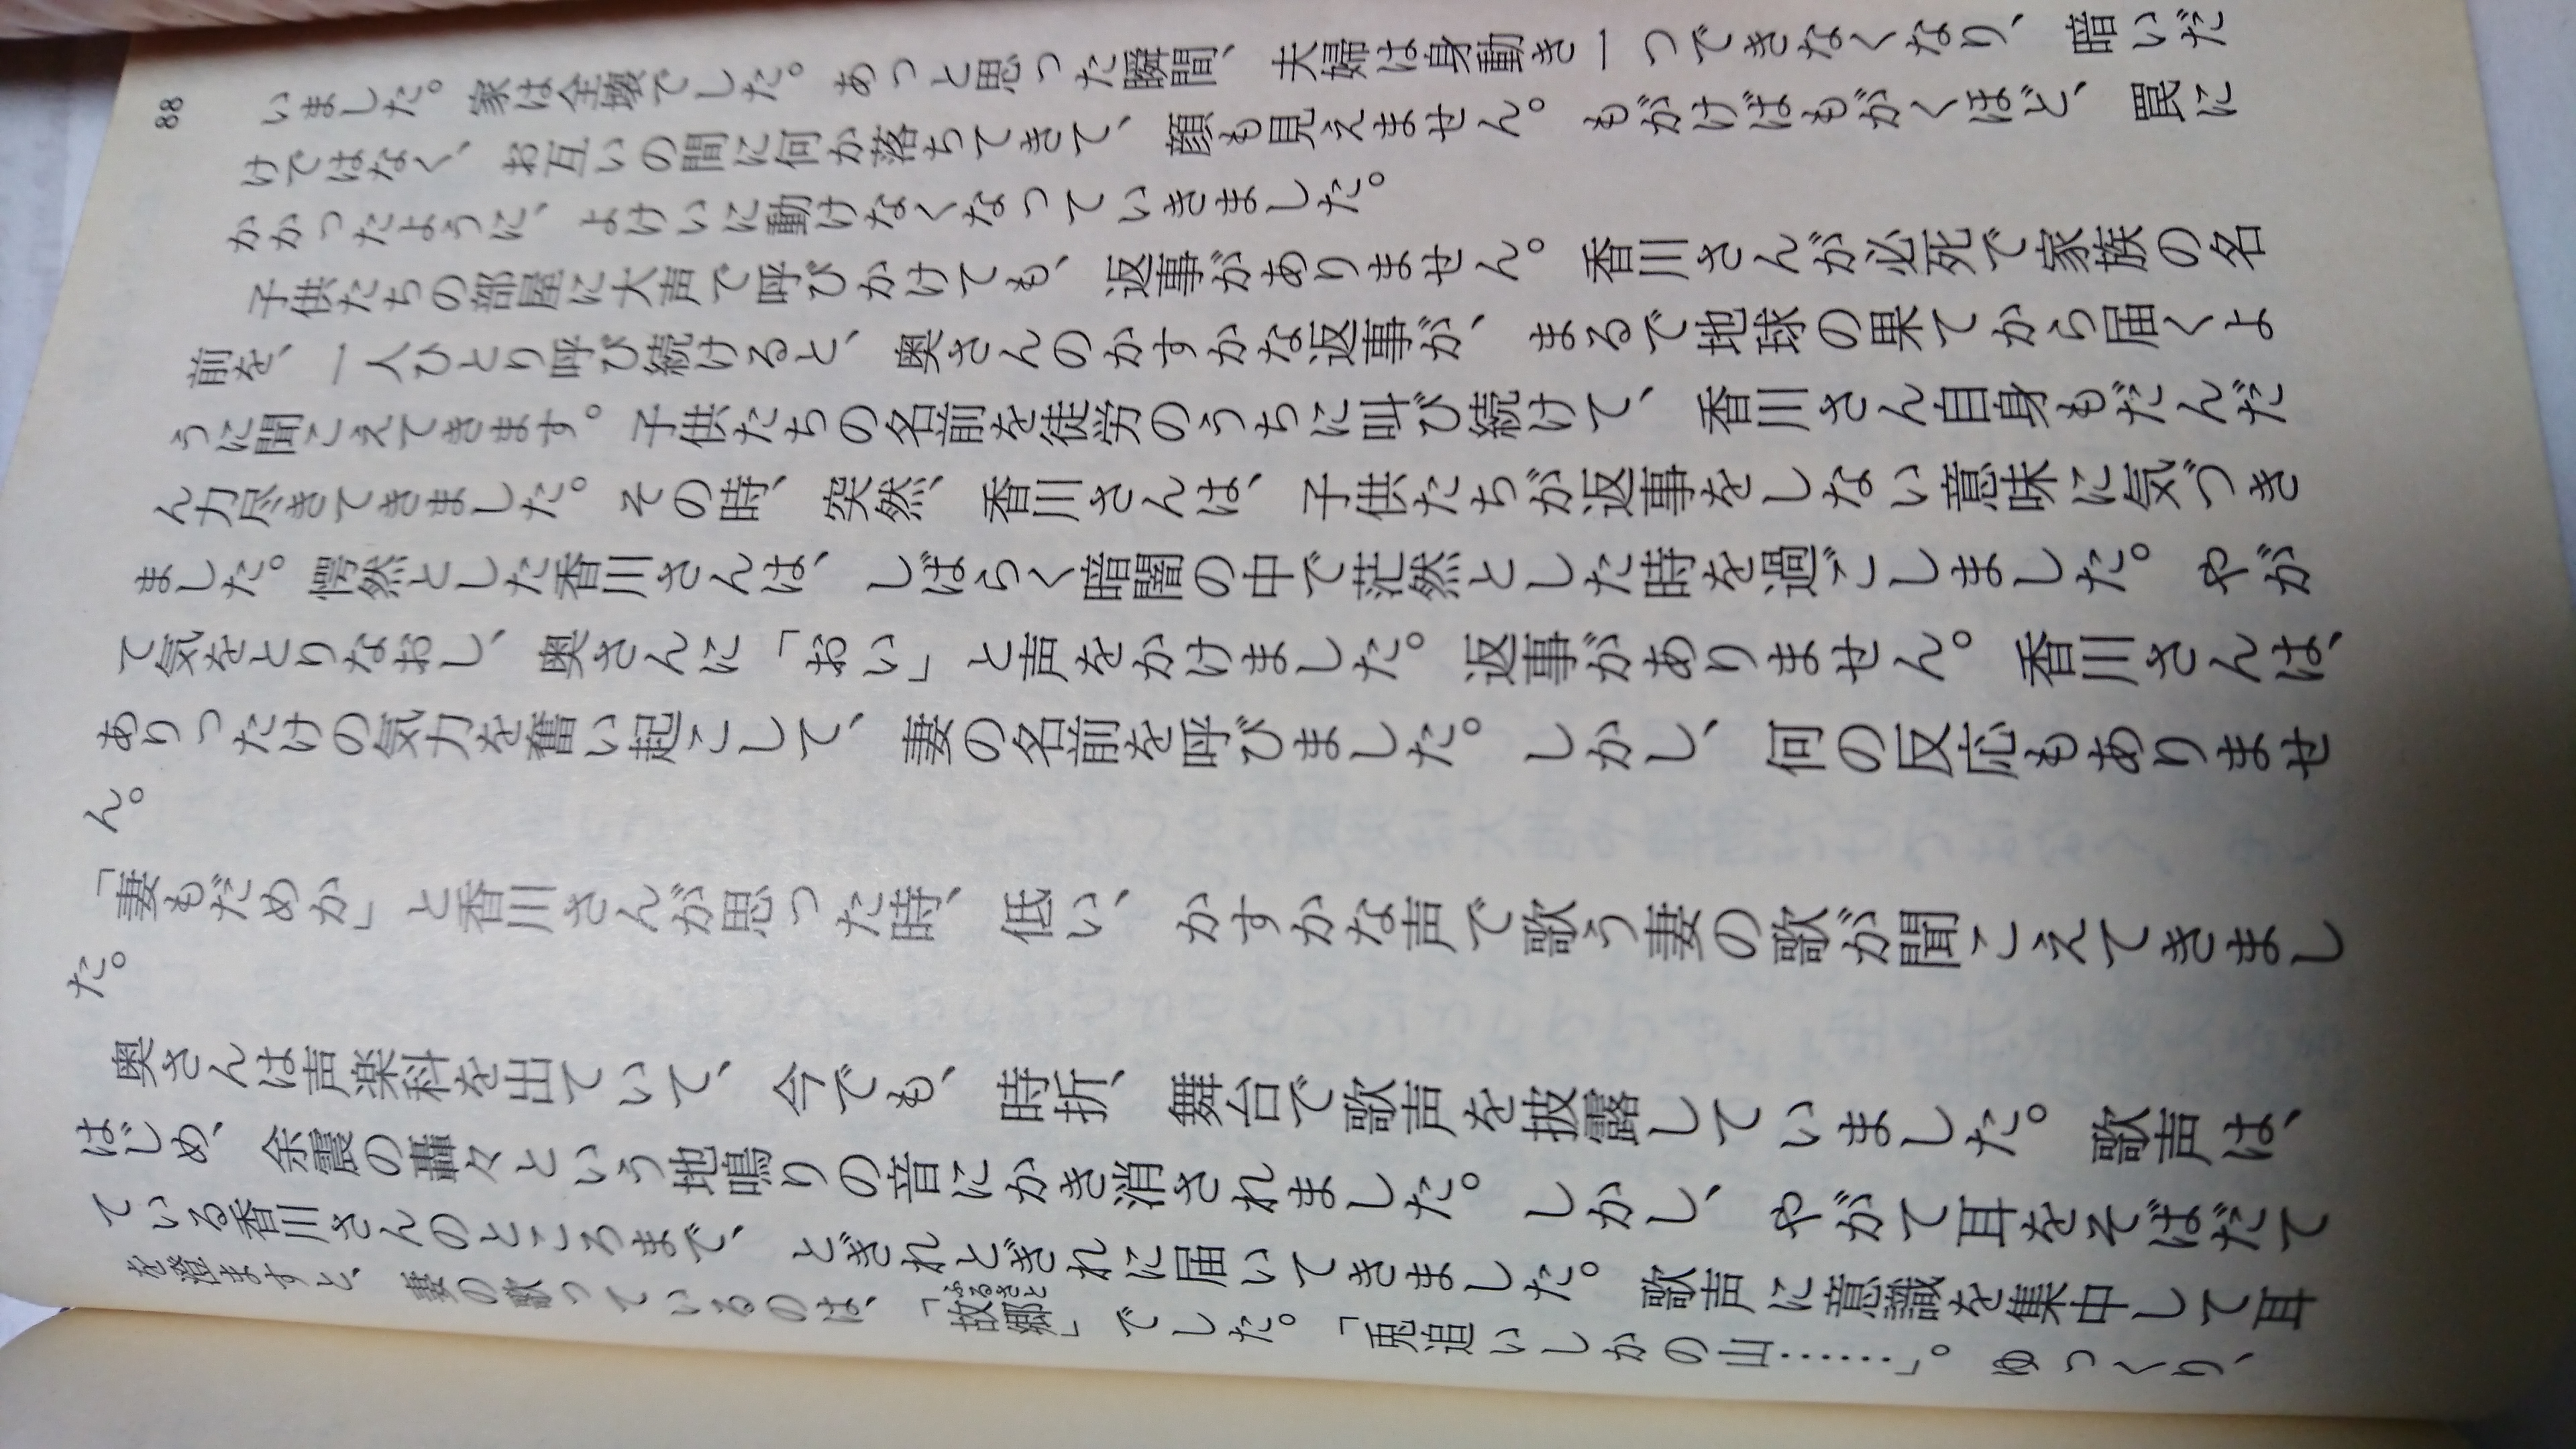 88
いました。家は全壊でした。あっと思った瞬間、夫婦は身動き一つできなくなり、暗いだ
けではなく、お互いの間に何か落ちてきて、顔も見えません。もがけばもがくほど、罠に
かかったように、よけいに動けなくなっていきました。
子供たちの部屋に大声で呼びかけても、返事がありません。香川さんが必死で家族の名
前を、一人ひとり呼び続けると、奥さんのかすかな返事が、まるで地球の果てから届くよ
うに聞こえてきます。子供たちの名前を徒労のうちに叫び続けて、香川さん自身もだんだ
ん力尽きてきました。その時、突然、香川さんは、子供たちが返事をしない意味に気づき
ました。愕然とした香川さんは、しばらく暗闇の中で茫然とした時を過ごしました。やが
て気をとりなおし、奥さんに「おい」と声をかけました。返事がありません。香川さんは、
ありったけの気力を奮い起こして、妻の名前を呼びました。しかし、何の反応もありませ
ん。
「妻もだめか」と香川さんが思った時、低い、かすかな声で歌う妻の歌が聞こえてきまし
た。
奥さんは声楽科を出ていて、今でも、時折、舞台で歌声を披露していました。歌声は、
はじめ、余震の轟々という地鳴りの音にかき消されました。しかし、やがて耳をそばだて
ている香川さんのところまで、とぎれとぎれに届いてきました。歌声に意識を集中して耳
を澄ますと、妻の歌っているのは、「故郷」でした。「兎追いしかの山……」。ゆっくり、
ふるさと